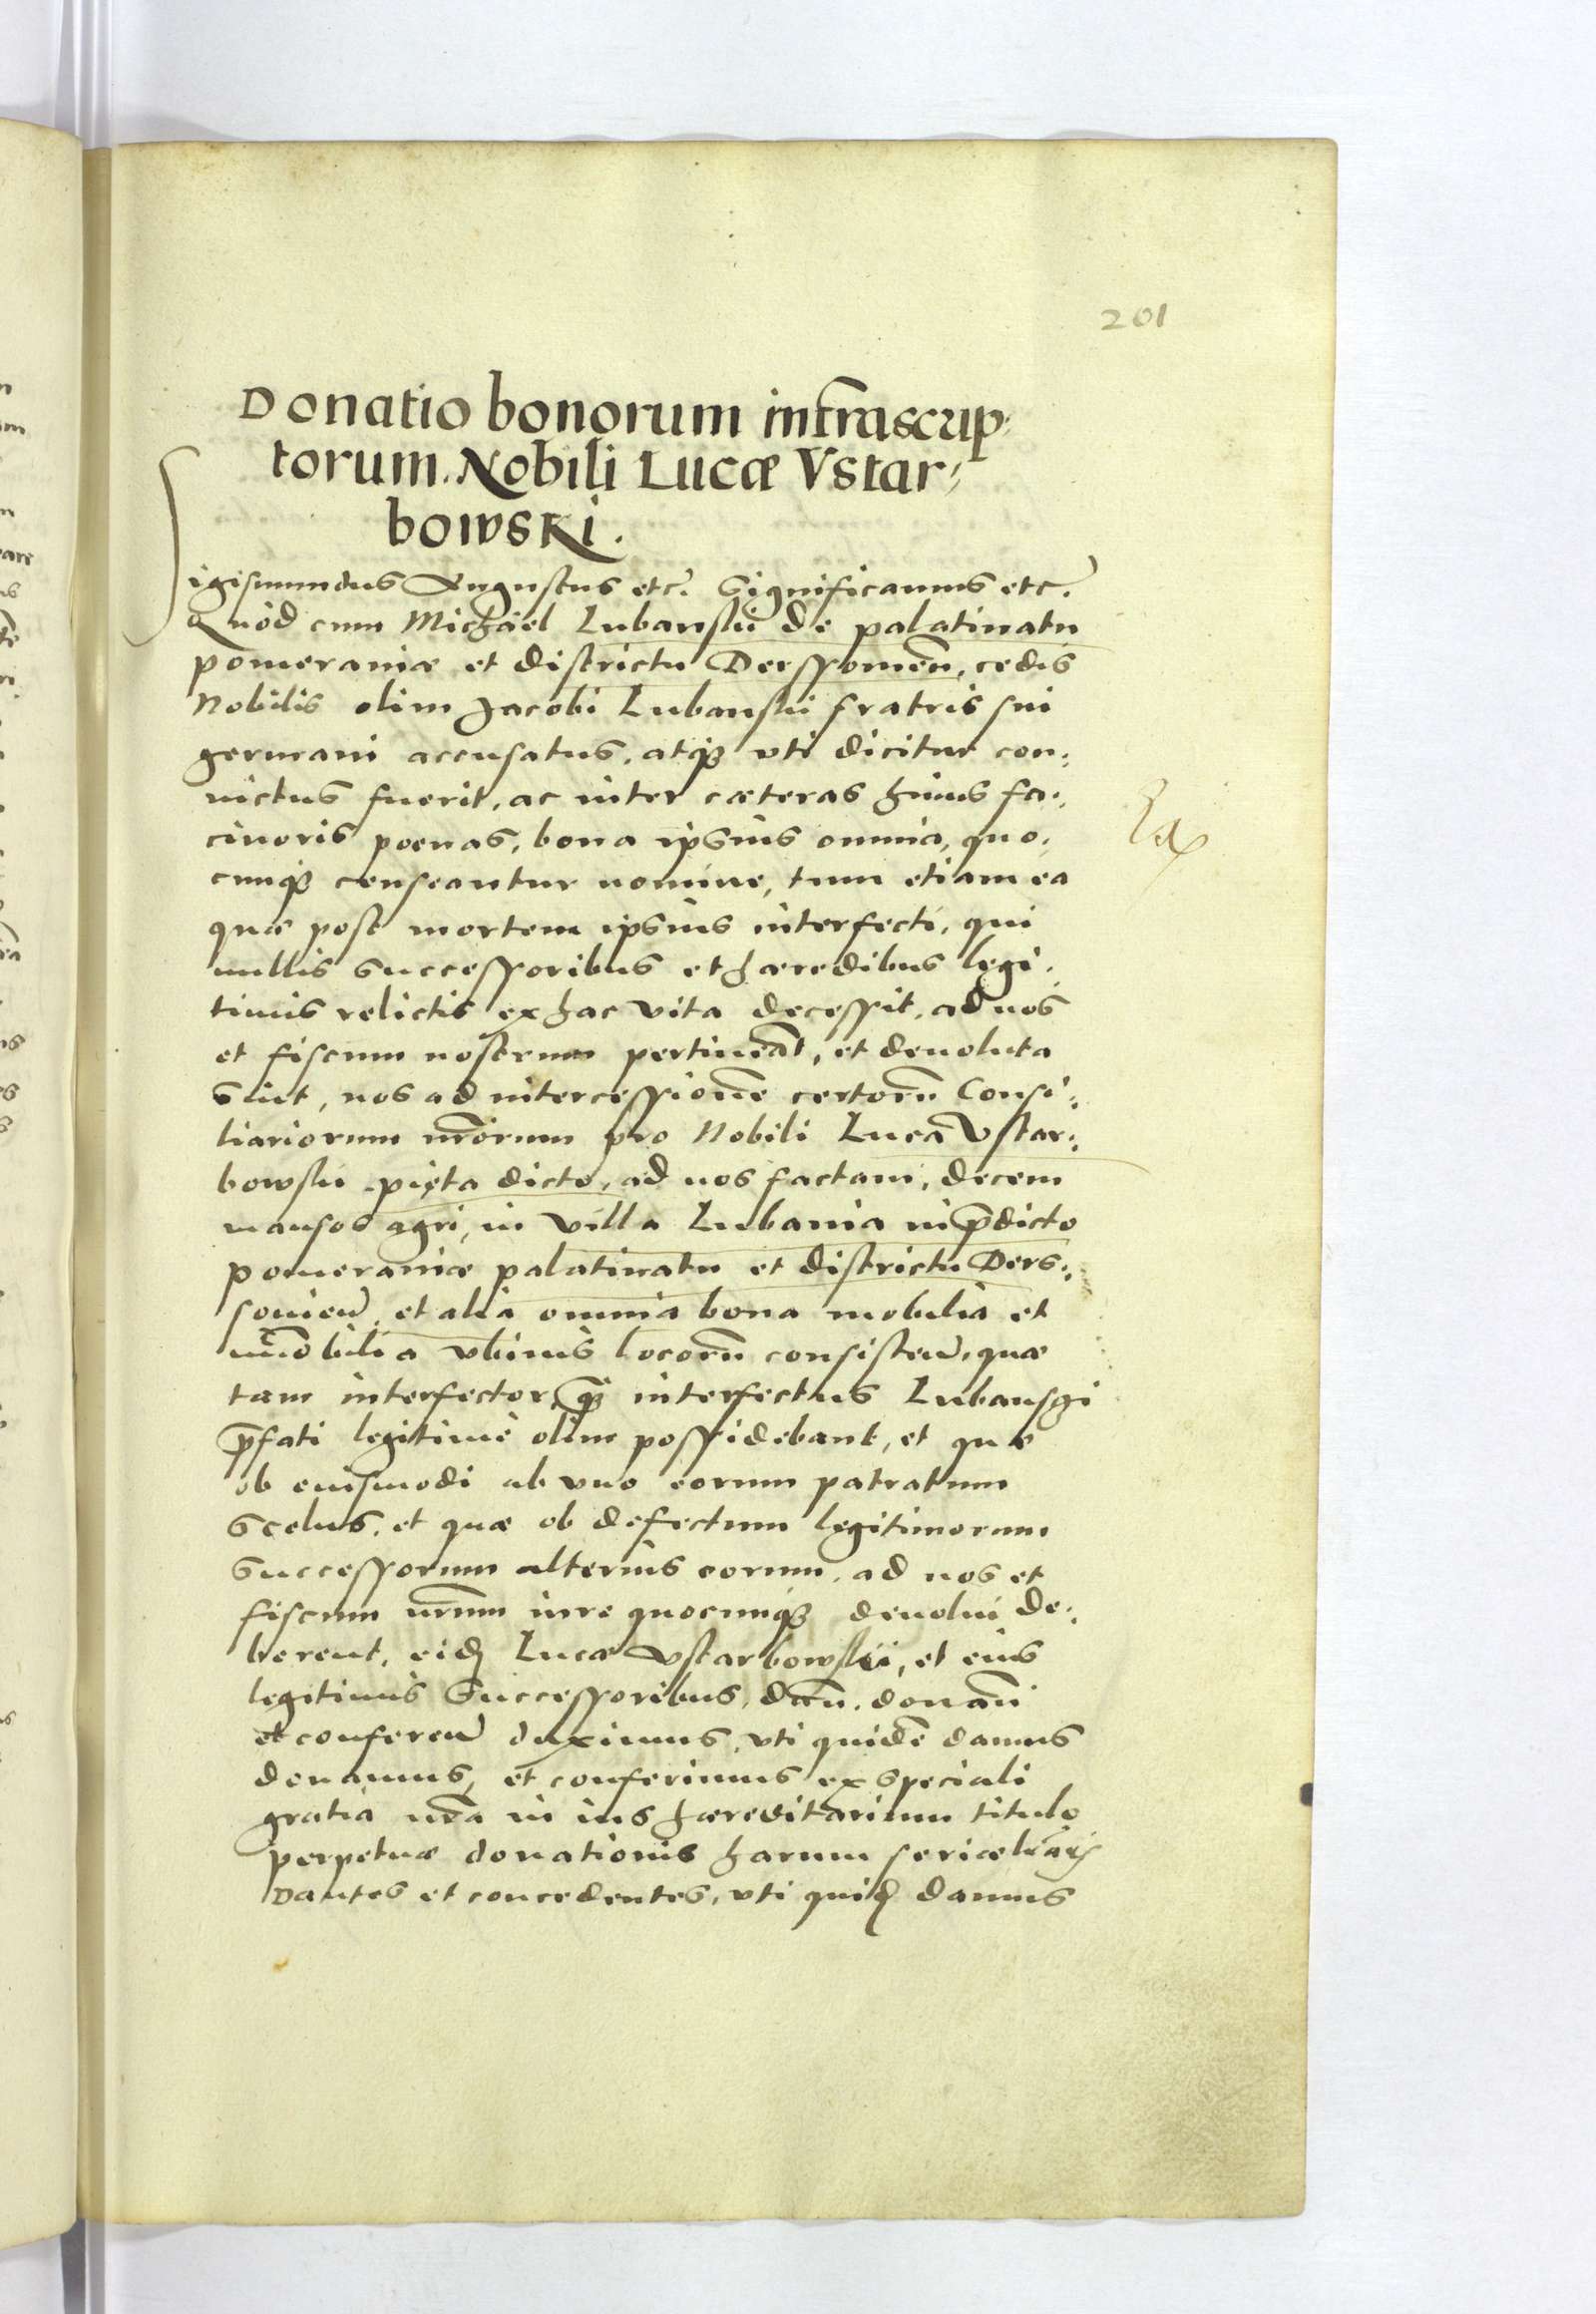 201
Donatio bonorum infrãscrip:
torum. Nobili Lucæ Vstar:
bowski.
Sigismundus Augustus etc̃. Significamus etc̃.
Quòd cum Michael Lubanski de palatinatu
pomeraniæ et districtu Derssowien̄, cedis
Nobilis olim Jacobi Lubanski fratris sui
germani accusatus, atqȝ vti dicitur con:
uictus fuerit, ac inter cæteras huius fa:
cinoris poenas, bona ipsius omnia, quo:
cunqȝ censeantur nomine, tum etiam ea
quæ post mortem ipsius interfecti, qui
nullis successoribus et hæredibus legi:
timis relictis ex hac vita decessit, ad nos
et fiscum nostrum pertineāt, et deuoluta
sint, nos ad intercessionē certorū Consi:
liariorum nr̃orum pro Nobili Luca Vstar:
bowski pięta dicto, ad nos factam, decem
mansos agri, in villa Lubania in p̃dicto
pomeraniæ palatinatu et districtu Ders:
souien̄, et alia omnia bona mobilia et
im̄obilia vbiuis locorū consisten̄, quæ
tam interfector, q̃ȝ interfectus Lubansgi
p̃fati legitimè olim possidebant, et quæ
ob eiusmodi ab vno eorum patratum
scelus, et quæ ob defectum legitimorum
successorum alterius eorum, ad nos et
fiscum nr̃um iure quocunqȝ deuolui de:
berent, eidȩ Lucæ Vstarbowskii, et eius
legitimis Successoribus, dan̄, donan̄
et conferen̄ duximus, vti quidē damus
donamus, et conferimus ex speciali
gratia nr̃a in ius hæreditarium titulo
perpetuæ donationis harum serie lr̃arȝ
Dantes et concedentes, vti quidȩ damus